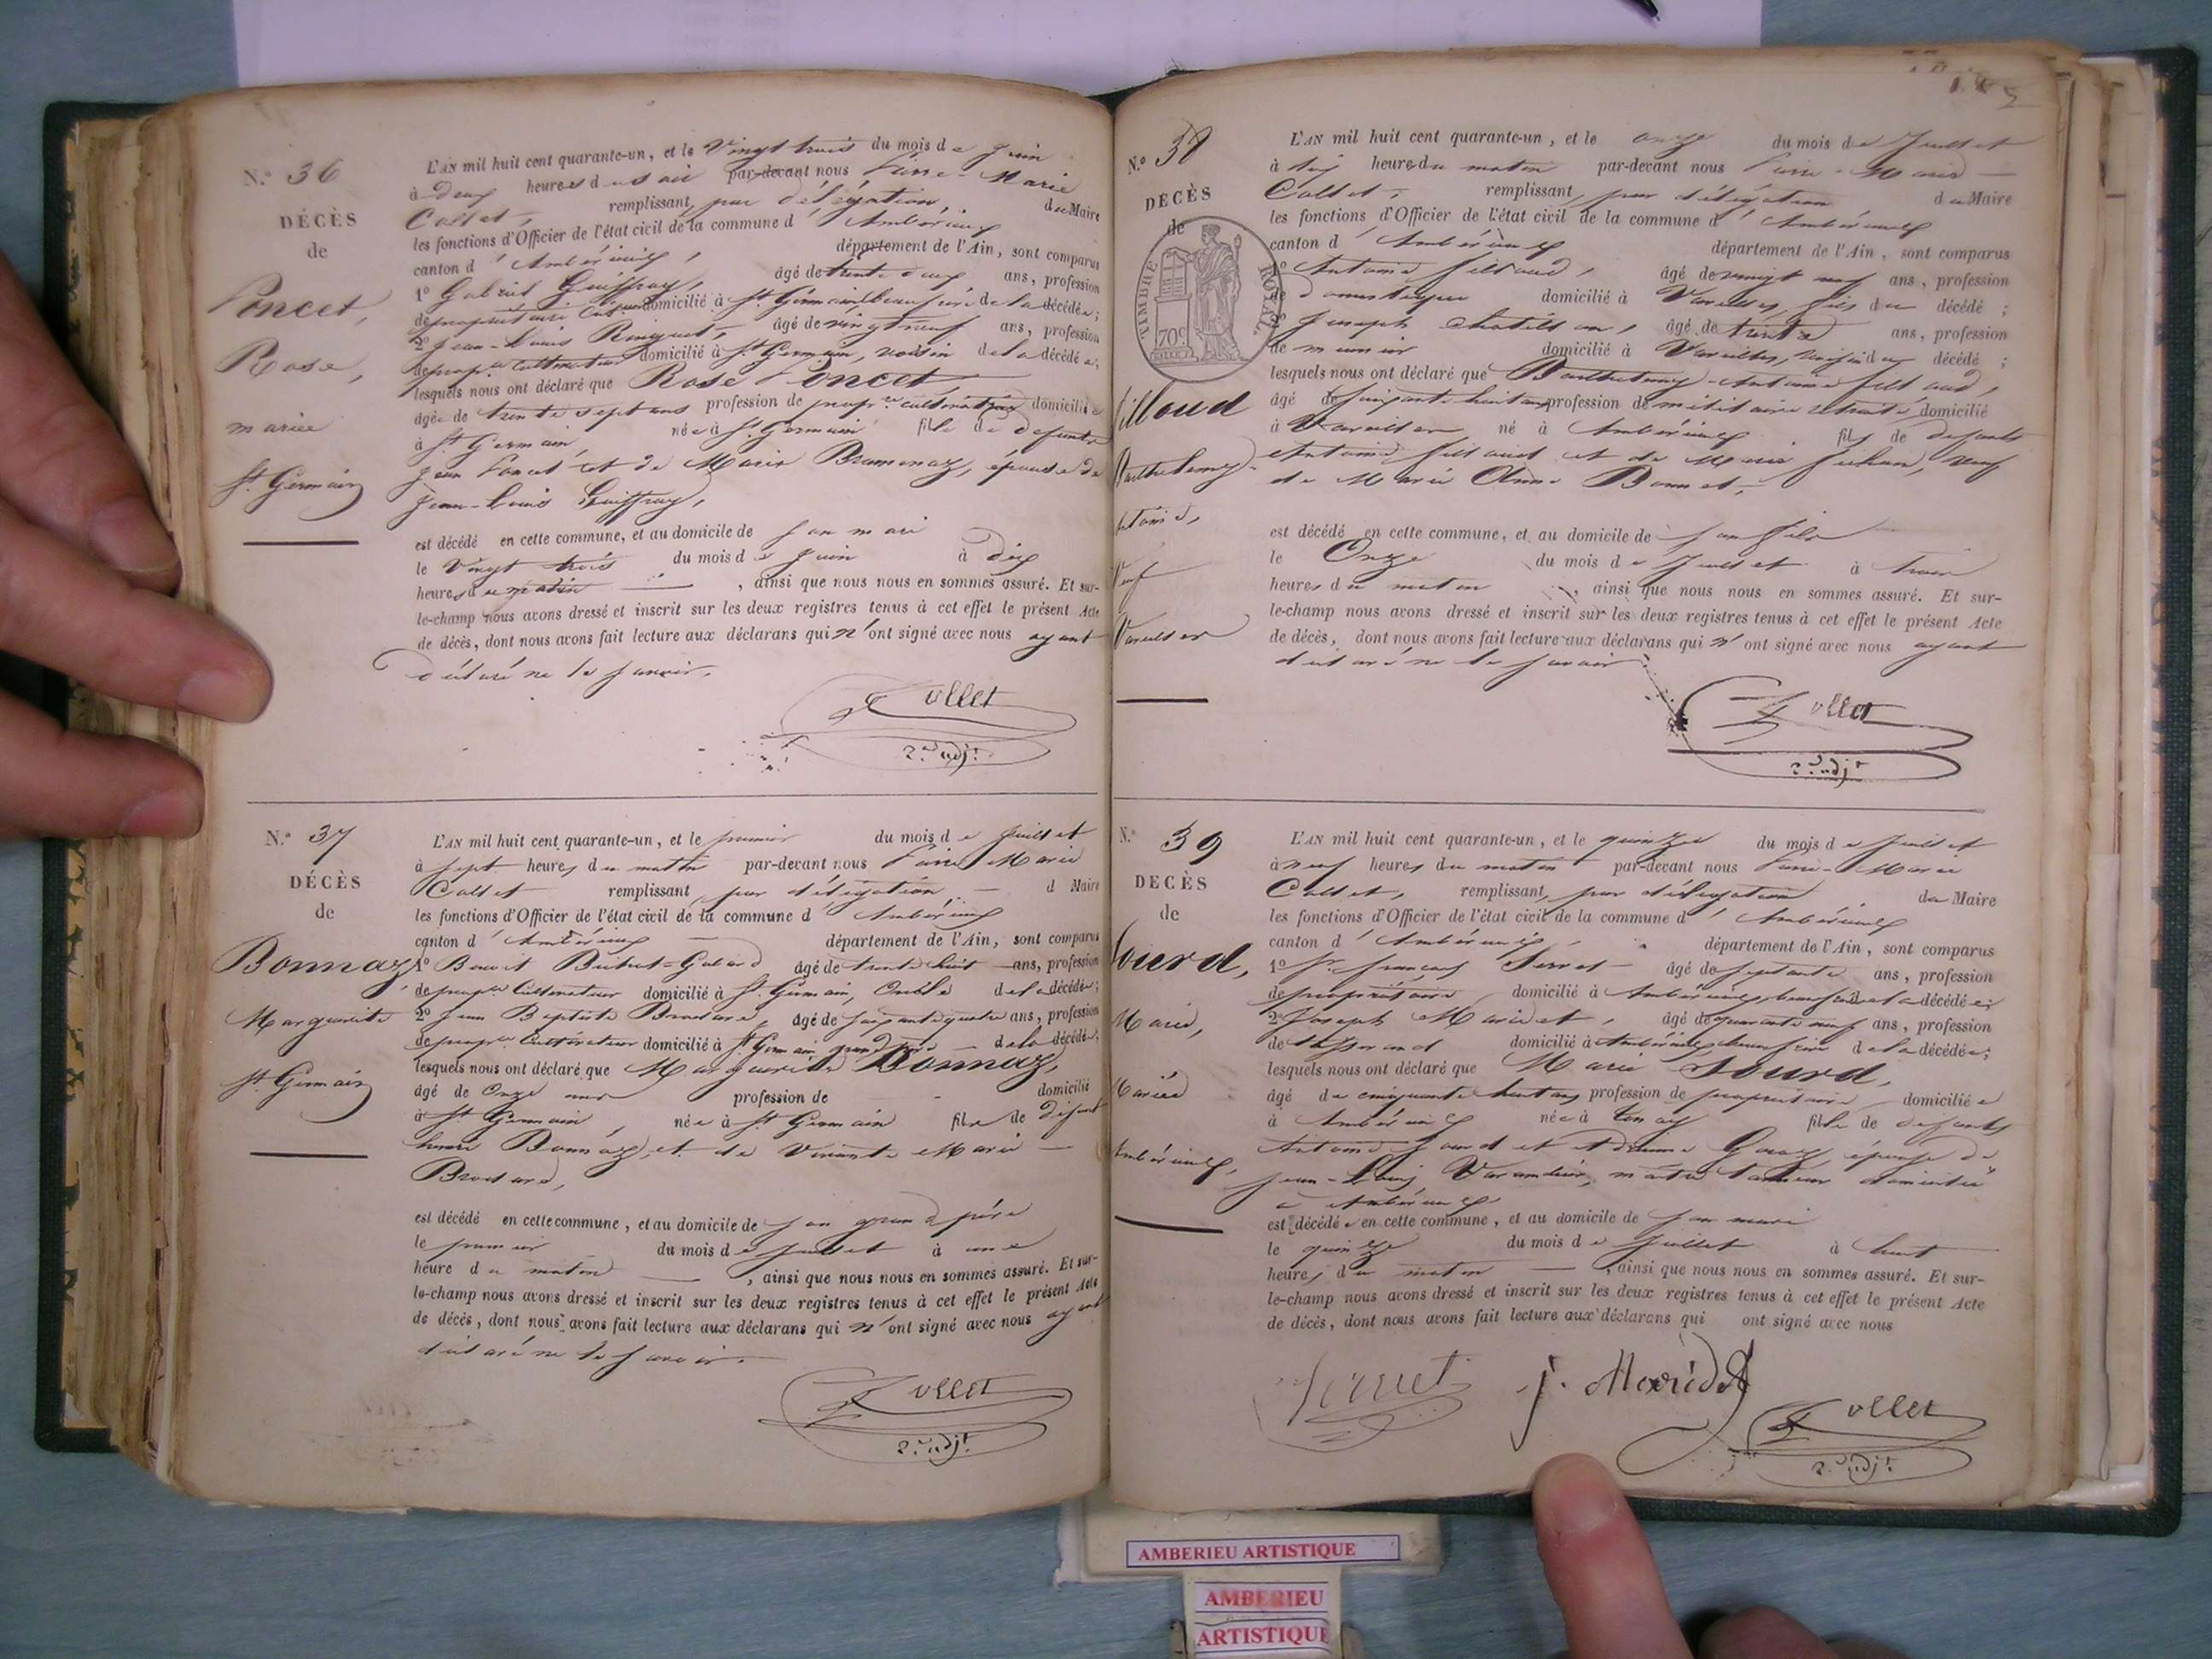 N.º 36
DÉCÈS
de
Poncet,
Rose,
mariée
St. Germain
L'AN mil huit cent quarante-un, et le Vingt trois du mois de Juin
à deux heures du soir par-devant nous Pierre-Marie
Collet, remplissant, par délégation, du Maire
les fonctions d'Officier de l'état civil de la commune d'Ambérieux
canton d'Ambérieux, département de l'Ain, sont comparus
1º Gabriel Guiffray, âgé de trente deux ans, profession
de propriétaire domicilié à St. Germain, beau frère de la décédée;
2º Jean-Louis âgé de vingt neuf ans, profession
de prop.re cultivateur domicilié à St. Germain, voisin de la décédée;
lesquels nous ont déclaré que Rose Poncet,
âgée de trente sept ans profession de prop.re cultivatrice domiciliée
à St. Germain née à St. Germain fille de defunts
Jean Poncet et de Marie Bramenaz, épouse de
Jean-Louis Guiffray,
est décédé en cette commune, et au domicile de son mari
le Vingt trois du mois de Juin à dix
heures du matin, ainsi que nous nous en sommes assuré. Et sur-
le-champ nous avons dressé et inscrit sur les deux registres tenus à cet effet le présent Acte
de décès, dont nous avons fait lecture aux déclarans qui n'ont signé avec nous ayant
déclaré ne le savoir.
Collet
2.d adj.t
N.º 37
DÉCÈS
de
Bonnaz,
Marguerite
St. Germain
L'AN mil huit cent quarante-un, et le premier du mois de Juillet
à sept heures du matin par-devant nous Pierre Marie
Collet remplissant, par délégation d Maire
les fonctions d'Officier de l'état civil de la commune d'Ambérieux
canton d'Ambérieux département de l'Ain, sont comparus
1º Benoit âgé de trente huit ans, profession
de prop.re Cultivateur domicilié à St. Germain, Oncle de la décédée;
2º Jean Baptiste Brodard, âgé de soixante quatre ans, profession
de prop.re Cultivateur domicilié à St. Germain grand père de la décédée;
lesquels nous ont déclaré que Marguerite Bonnaz,
âgé de Onze ans profession de domicilié
à St. Germain, née à St. Germain fille de défunt
Bonnaz, et de Marie
Brodard,
est décédé en cette commune, et au domicile de son grand père
le premier du mois de Juillet à une
heure du matin, ainsi que nous nous en sommes assuré. Et sur-
le-champ nous avons dressé et inscrit sur les deux registres tenus à cet effet le présent Acte
de décès, dont nous avons fait lecture aux déclarans qui n'ont signé avec nous ayant
déclaré ne le savoir.
Collet
2.d adj.t
N.º 38
DÉCÈS
de
TIMBRE ROYAL
70c
illoud
Barthelemy-
Antoine,
Veuf
Vareilles
L'AN mil huit cent quarante-un, et le onze du mois de Juillet
à dix heures du matin par-devant nous Pierre-Marie
Collet, remplissant, par délégation du Maire
les fonctions d'Officier de l'état civil de la commune d'Ambérieux
canton d'Ambérieux département de l'Ain, sont comparus
1º Antoine Filloud, âgé de vingt neuf ans, profession
de domestique domicilié à Vareilles, fils du décédé;
Joseph Chatillon, âgé de trente ans, profession
de meunier domicilié à Vareilles, voisin du décédé;
lesquels nous ont déclaré que Barthelemy-Antoine Filloud,
âgé de soixante huit ans profession de militaire retraité, domicilié
à Vareilles né à Ambérieux fils de defunts
Antoine Filloud et de Marie Juhan, veuf
de Marie Anne Bonnet,
est décédé en cette commune, et au domicile de son fils
le Onze du mois de Juillet à trois
heures du matin, ainsi que nous nous en sommes assuré. Et sur-
le-champ nous avons dressé et inscrit sur les deux registres tenus à cet effet le présent Acte
de décès, dont nous avons fait lecture aux déclarans qui n'ont signé avec nous ayant
déclaré ne le savoir
Collet
2.d adj.t
N.º 39
DECÈS
de
Sourd,
Marie,
Mariée
Ambérieux,
L'AN mil huit cent quarante-un, et le quinze du mois de Juillet
à neuf heures du matin par-devant nous Pierre-Marie
Collet, remplissant, par délégation du Maire
les fonctions d'Officier de l'état civil de la commune d'Ambérieux
canton d'Ambérieux département de l'Ain, sont comparus
1º Jn. François Serret âgé de septante ans, profession
de propriétaire domicilié à Ambérieux, beau frère de la décédée;
2º Joseph Mariedet, âgé de quarante neuf ans, profession
de tisserand domicilié à Ambérieux, beau frère de la décédée;
lesquels nous ont déclaré que Marie Sourd,
âgé de cinquante huit ans profession de propriétaire domiciliée
à Ambérieux née à Tenay fille de defunts
Antoine Sourd et épouse de
Jean-Louis maître tanneur domicilié
à Ambérieux
est décédée en cette commune, et au domicile de son mari
le quinze du mois de Juillet à huit
heures du matin, ainsi que nous nous en sommes assuré. Et sur-
le-champ nous avons dressé et inscrit sur les deux registres tenus à cet effet le présent Acte
de décès, dont nous avons fait lecture aux déclarans qui ont signé avec nous
Serret
j. Mariedet
Collet
2.d adj.t
AMBERIEU ARTISTIQUE
AMBERIEU
ARTISTIQUE